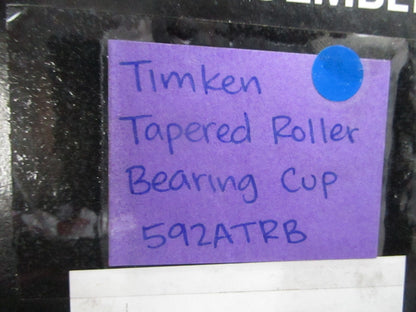 Timken
Tapered Roller
Bearing Cup
592ATRB